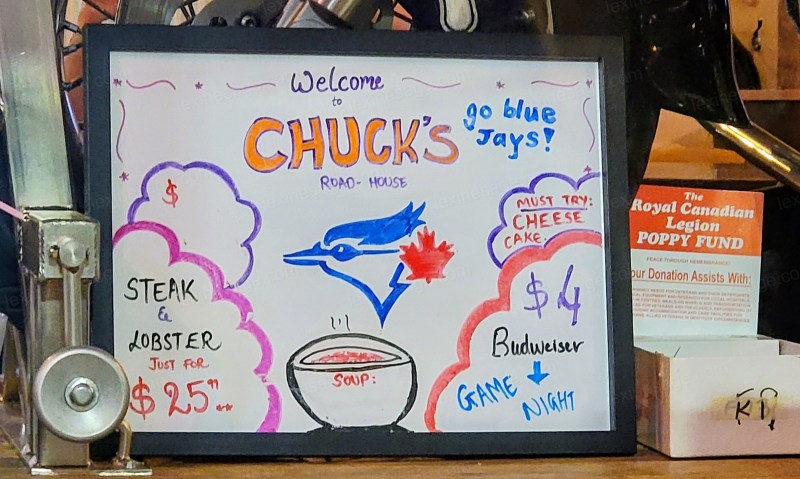 Welcome
to
CHUCK'S
ROAD-HOUSE
go blue
Jays!
$
MUST TRY:
CHEESE
CAKE
STEAK
&
LOBSTER
JUST FOR
$25"
SOUP:
$4
Budweiser
GAME
NIGHT
The
Royal Canadian
Legion
POPPY FUND
our Donation Assists With: